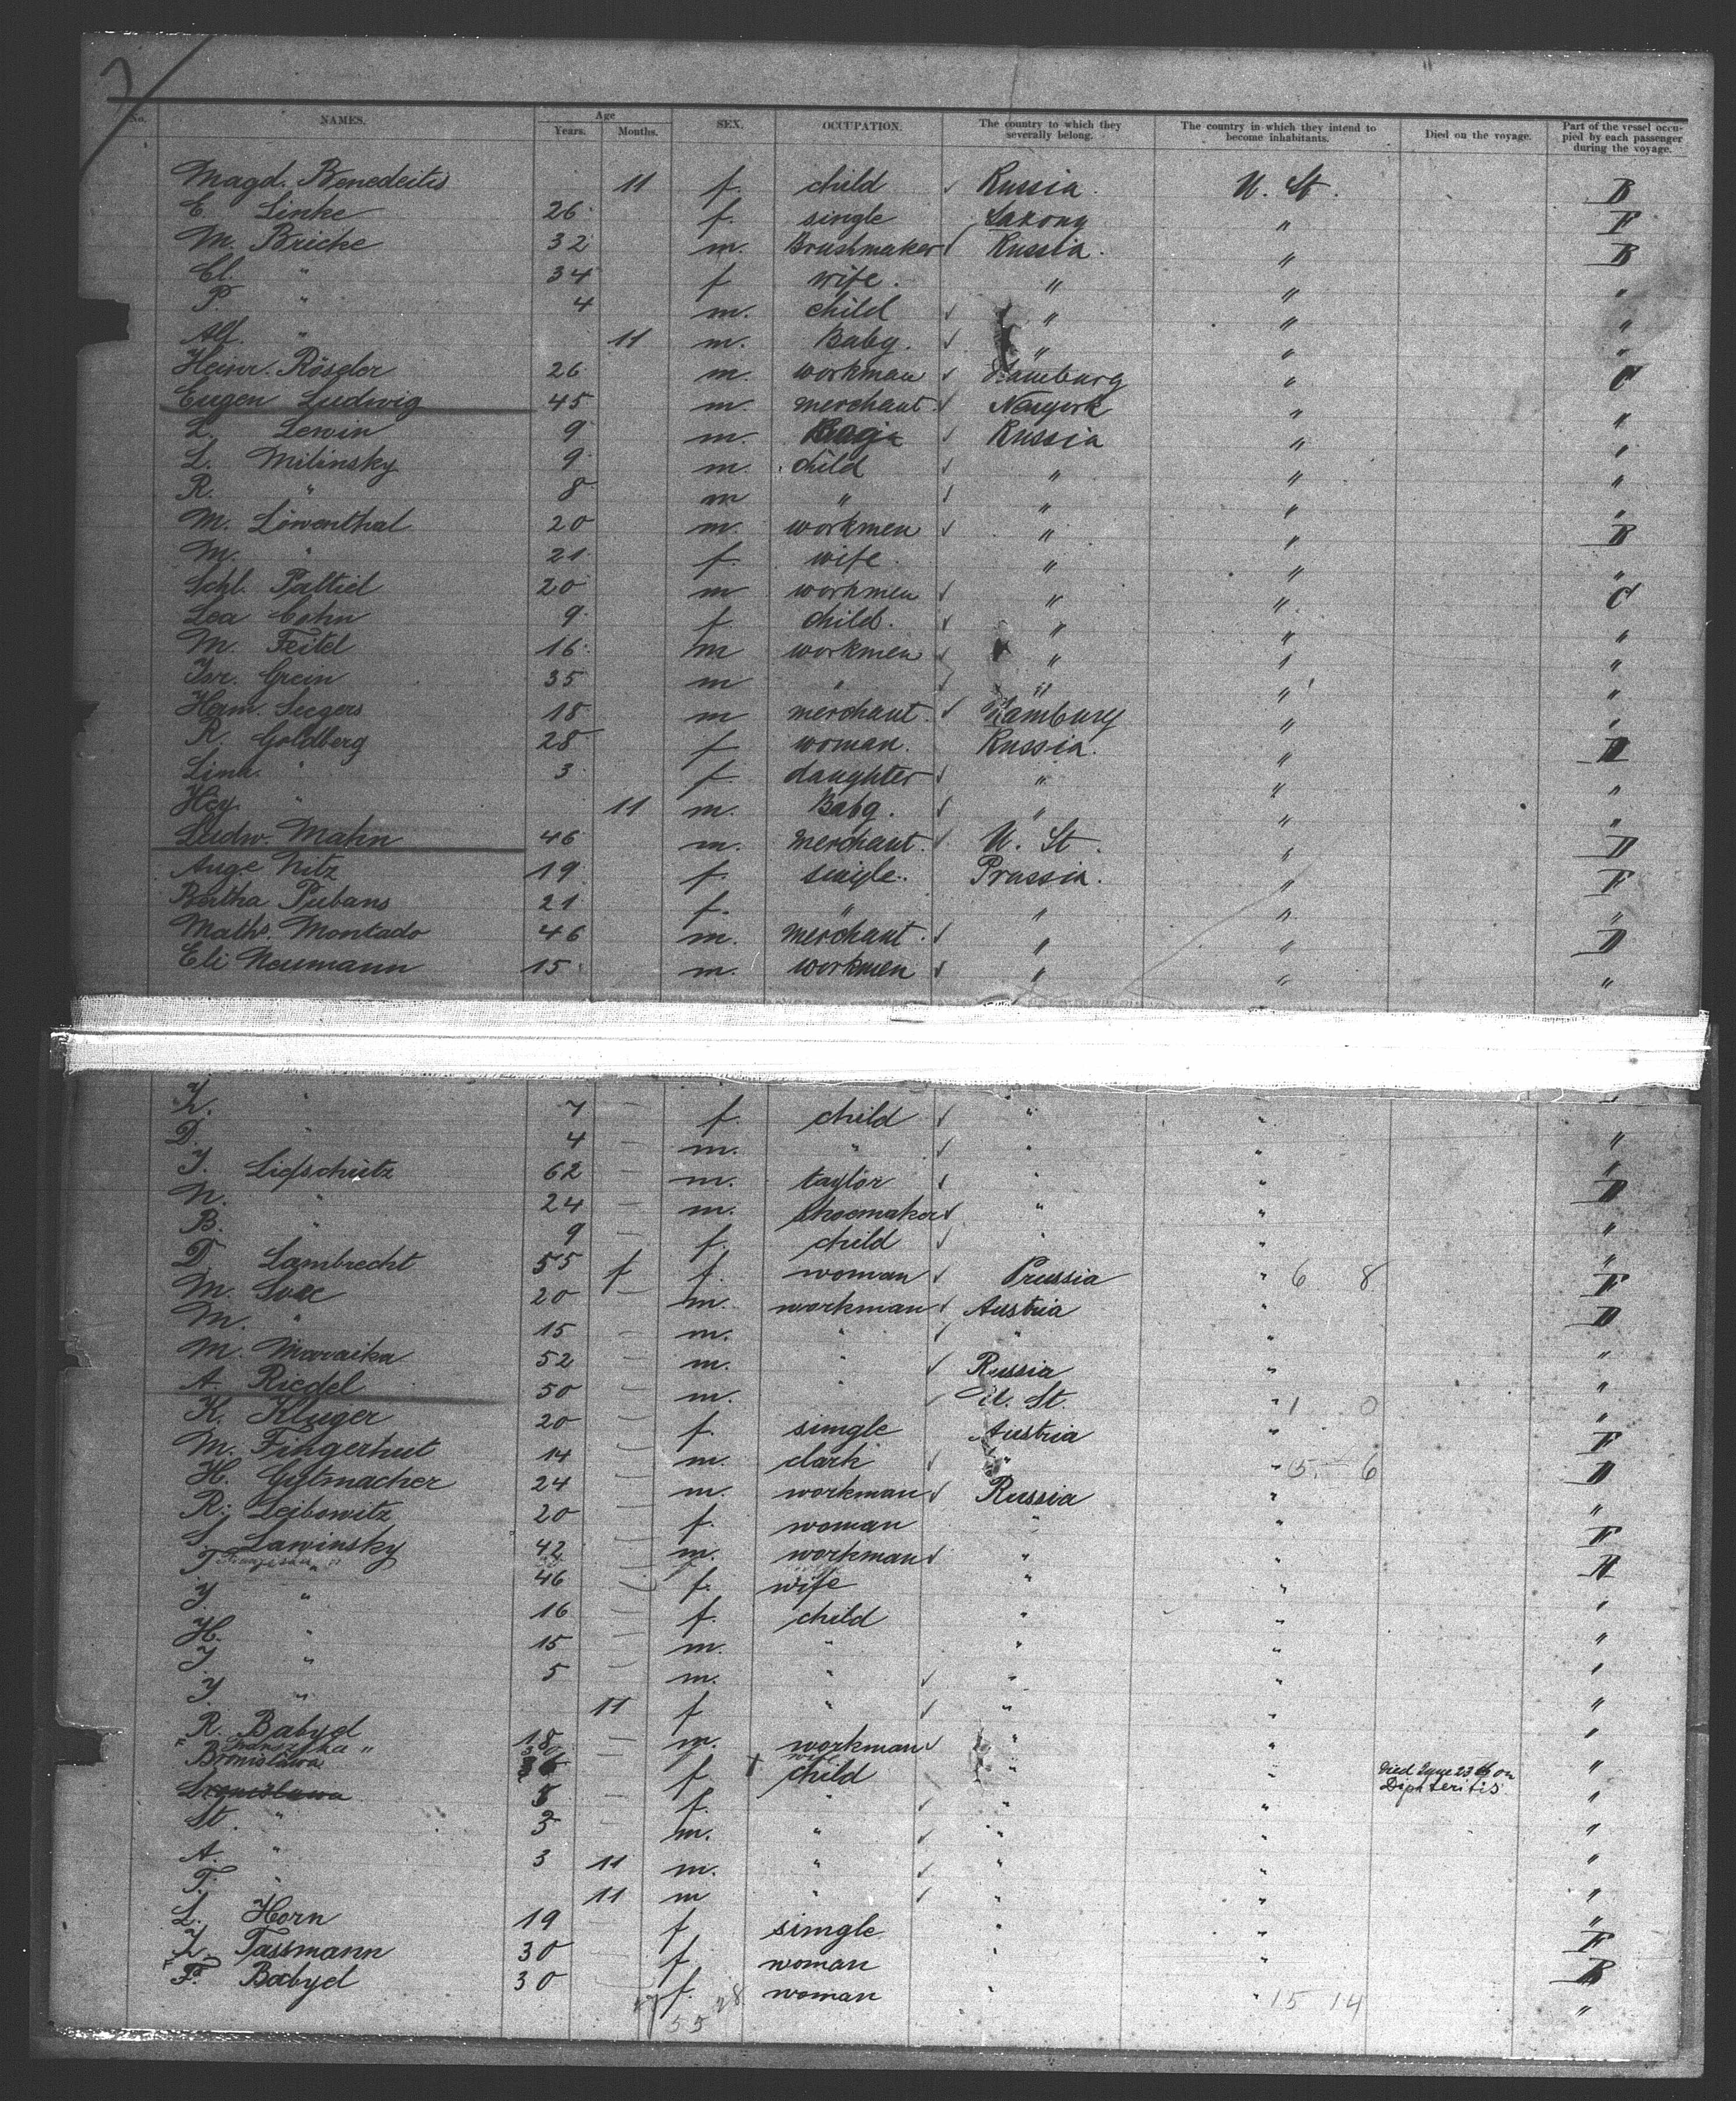 No. NAMES. Age Years. Months. SEX. OCCUPATION. The country to which they severally belong. The country in which they intend to become inhabitants. Died on the voyage. Part of the vessel occupied by each passenger during the voyage.
Magd. Benedeitis 11 f. child Russia. U. St. B
E. Linke 26 f. single Saxony " F
M. Bricke 32 m. Brushmaker Russia. " B
Cl. " 34 f wife. " " "
P. " 4 m. child " " "
Alf. " 11 m. Baby. " " "
Heinr. Rösler 26 m. workman Hamburg " C
Eugen Ludwig 45 m. merchant Newyork " "
L. Lewin 9 m. Russia " "
L. Milinsky 9 m. child " " "
R. " 8 m " " " "
M. Löwenthal 20 m. workmen " " B
M. " 21 f. wife. " " "
Schl. Paltiel 20 m workmen " " C
Lea Cohn 9 f. child. " " "
M. Feitel 16 m workmen " " "
Isr. Grein 35 m " " " "
Ham. Seegers 18 m merchant. Hamburg " "
R. Goldberg 28 f woman. Russia. "
Lina " 3 f. daughter " " "
Hey. " 11 m. Baby. " " "
Ludw. Mahn 46 m. merchant. U. St. " D
Auge Nitz 19 f. single. Prussia. " F
Bertha Pubans 21 f. " " " "
Math. Montado 46 m. merchant. " " D
Eli Neumann 15 m. workmen " " "
" 7 — f. child " "
D. " 4 — m. " " " "
J. Liefschütz 62 — m. taylor " " D
N. " 24 — m. Shoemaker " " "
B. " 9 f. child " " "
D. Lambrecht 55 f f. woman Prussia " 6 8 F
M. 20 — m. workman Austria " D
M. " 15 — m. " " " "
M. Maraika 52 — m. " Russia " "
A. Riedel 50 — m. U. St. " 1 0 "
K. Kluger 20 — f. simgle Austria " F
M. Fingerhut 14 — m. clark " " 5 6 D
H. Gutmacher 24 — m. workman Russia " "
R. Leibowitz 20 — f. woman " " F
S. Lawinsky 42 — m. workman " " H
T. " 46 — f. wife " " "
J. " 16 — f. child " " "
H. " 15 — m. " " " "
J. " 5 — m. " " " "
J. " 11 f " " " "
R. Babyd 18 — m. workman " " "
Franziska " wife
Bronislawa 6 f child " " Died June 23th on Diphteritis "
5 — f. " " " "
St. " 3 — m. " " " "
A. " 3 11 m. " " " "
T. " 11 m " " " "
L. Horn 19 — f simgle " " F
Tassmann 30 — f woman " " B
F. Babyd 30 — f. woman " " 15 14 "
27 28
55